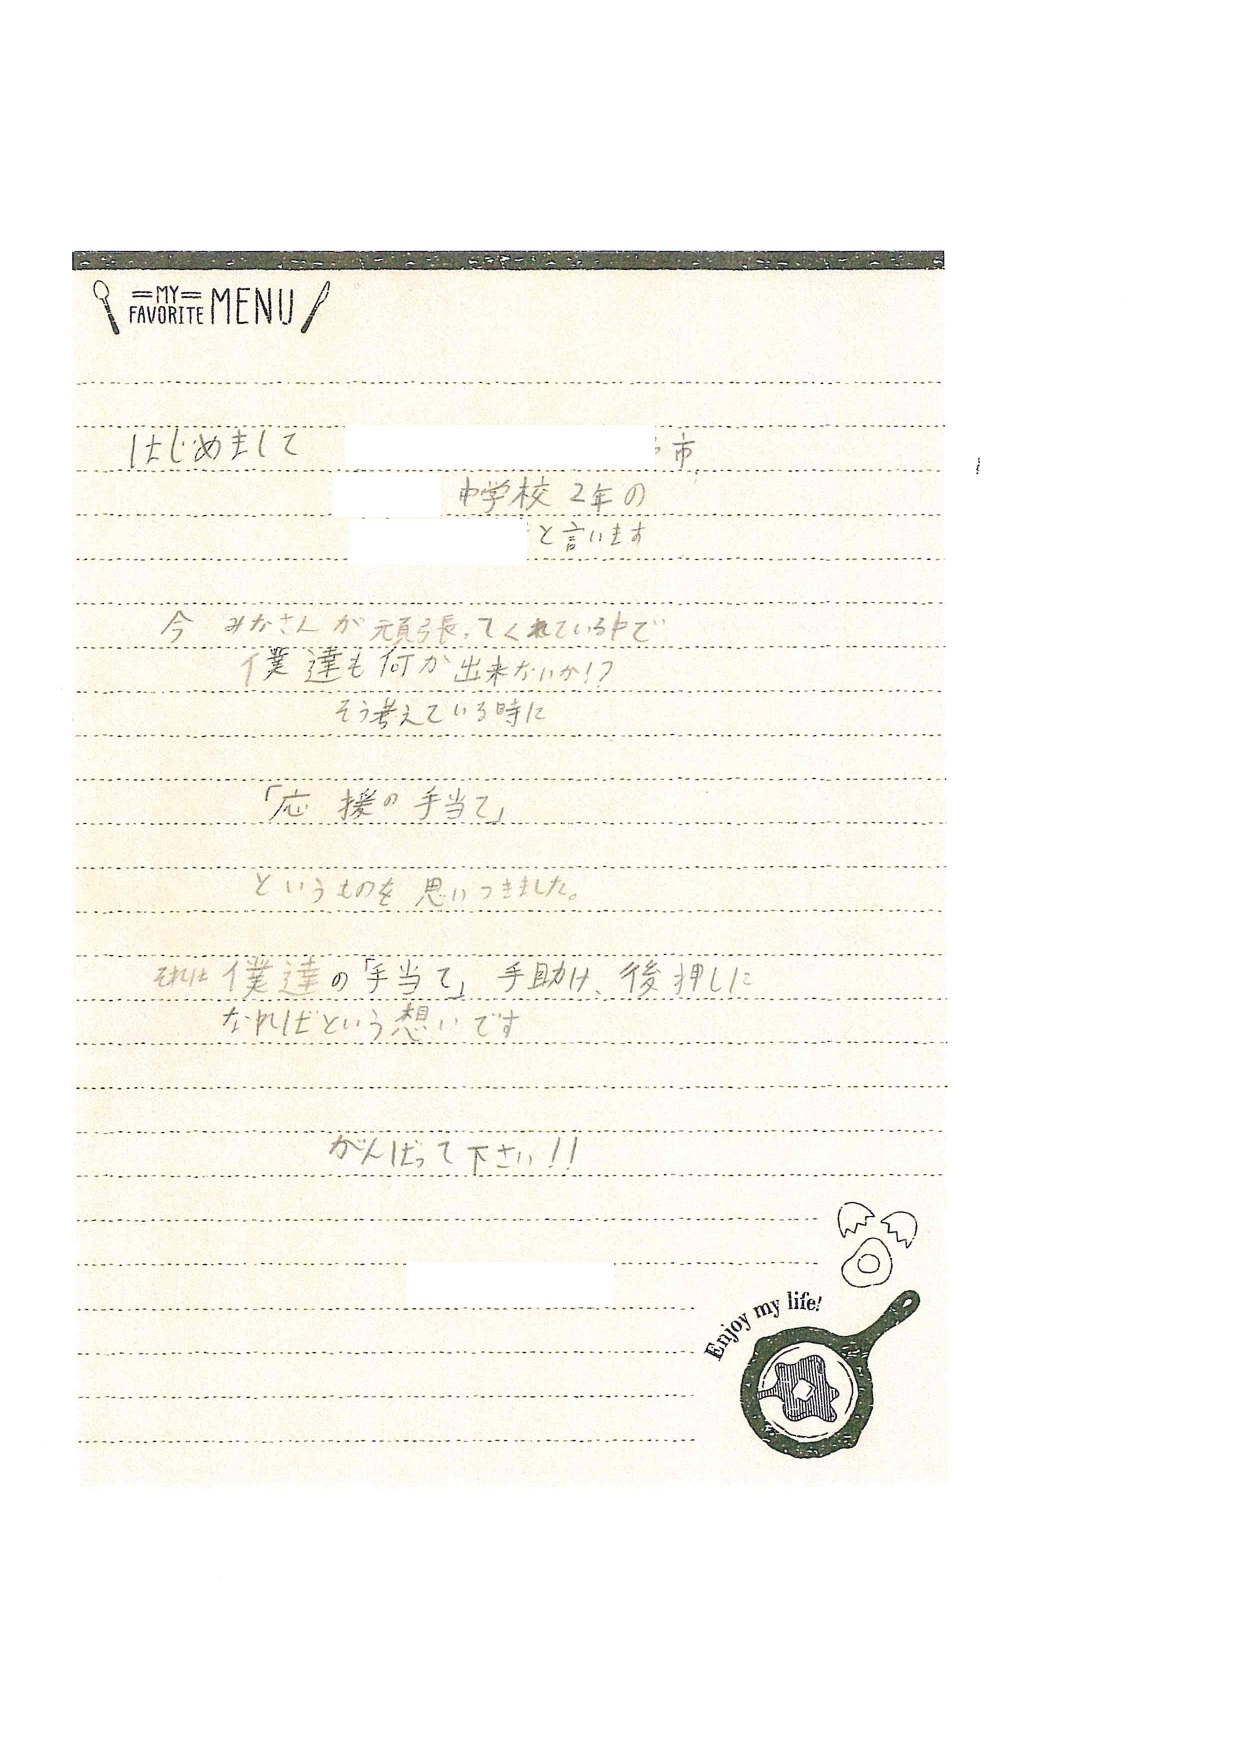 MY FAVORITE MENU
はじめまして 市
中学校 2年の
と言います
今 みなさんが 頑張ってくれている中で
僕達も何か出来ないか!?
そう考えている時に
「応援の手当て」
というものを 思いつきました。
それは 僕達の「手当て」 手助け、後押しに
なればという想いです
がんばって下さい!!
Enjoy my life!